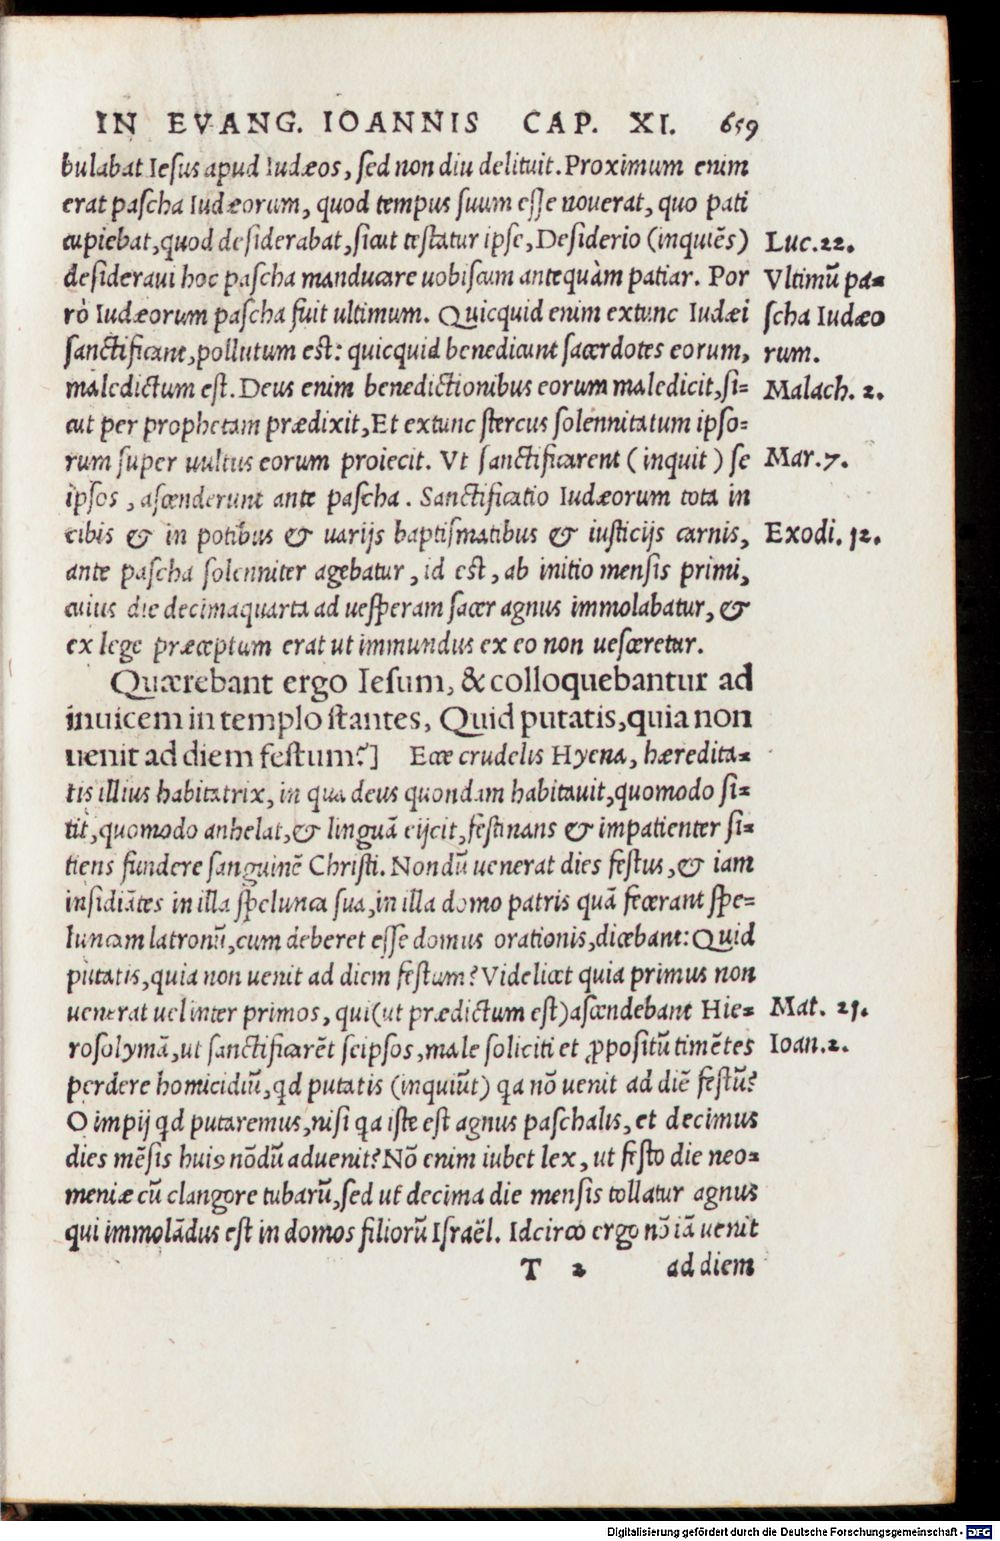 IN EVANG. IOANNIS CAP. XI. 659
bulabat Iesus apud Iudæos, sed non diu delituit. Proximum enim
erat pascha Iudæorum, quod tempus suum esse nouerat, quo pati
cupiebat, quod desiderabat, sicut testatur ipse, Desiderio (inquiẽs)
Luc. 22.
desideraui hoc pascha manducare uobiscum antequàm patiar. Por
Vltimũ pa=
rò Iudæorum pascha fuit ultimum. Quicquid enim extunc Iudæi
scha Iudæo
sanctificant, pollutum est: quicquid benedicunt sacerdotes eorum,
rum.
maledictum est. Deus enim benedictionibus eorum maledicit, si=
Malach. 2.
cut per prophetam prædixit, Et extunc stercus solennitatum ipso=
rum super uultus eorum proiecit. Vt sanctificarent (inquit) se
Mar. 7.
ipsos, ascenderunt ante pascha. Sanctificatio Iudæorum tota in
cibis & in potibus & uarijs baptismatibus & iusticijs carnis,
Exodi. 12.
ante pascha solenniter agebatur, id est, ab initio mensis primi,
cuius die decimaquarta ad uesperam sacer agnus immolabatur, &
ex lege præceptum erat ut immundus ex eo non uesceretur.
Quærebant ergo Iesum, & colloquebantur ad
inuicem in templo stantes, Quid putatis, quia non
uenit ad diem festum?] Ecce crudelis Hyena, hæredita=
tis illius habitatrix, in qua deus quondam habitauit, quomodo si=
tit, quomodo anhelat, & linguã eijcit, festinans & impatienter si=
tiens fundere sanguinẽ Christi. Nondũ uenerat dies festus, & iam
insidiãtes in illa spelunca sua, in illa domo patris quã fecerant spe=
luncam latronũ, cum deberet esse domus orationis, dicebant: Quid
putatis, quia non uenit ad diem festum? Videlicet quia primus non
uenerat uel inter primos, qui (ut prædictum est) ascendebant Hie=
Mat. 21.
rosolymã, ut sanctificarẽt seipsos, male soliciti et ꝓpositũ timẽtes
Ioan. 2.
perdere homicidiũ, qd putatis (inquiũt) qa nõ uenit ad diẽ festũ?
O impij qd putaremus, nisi qa iste est agnus paschalis, et decimus
dies mẽsis huiꝰ nõdũ aduenit? Nõ enim iubet lex, ut festo die neo=
meniæ cũ clangore tubarũ, sed ut decima die mensis tollatur agnus
qui immolãdus est in domos filiorũ Israël. Idcirco ergo nõ iã uenit
T 2 ad diem
Digitalisierung gefördert durch die Deutsche Forschungsgemeinschaft - DFG